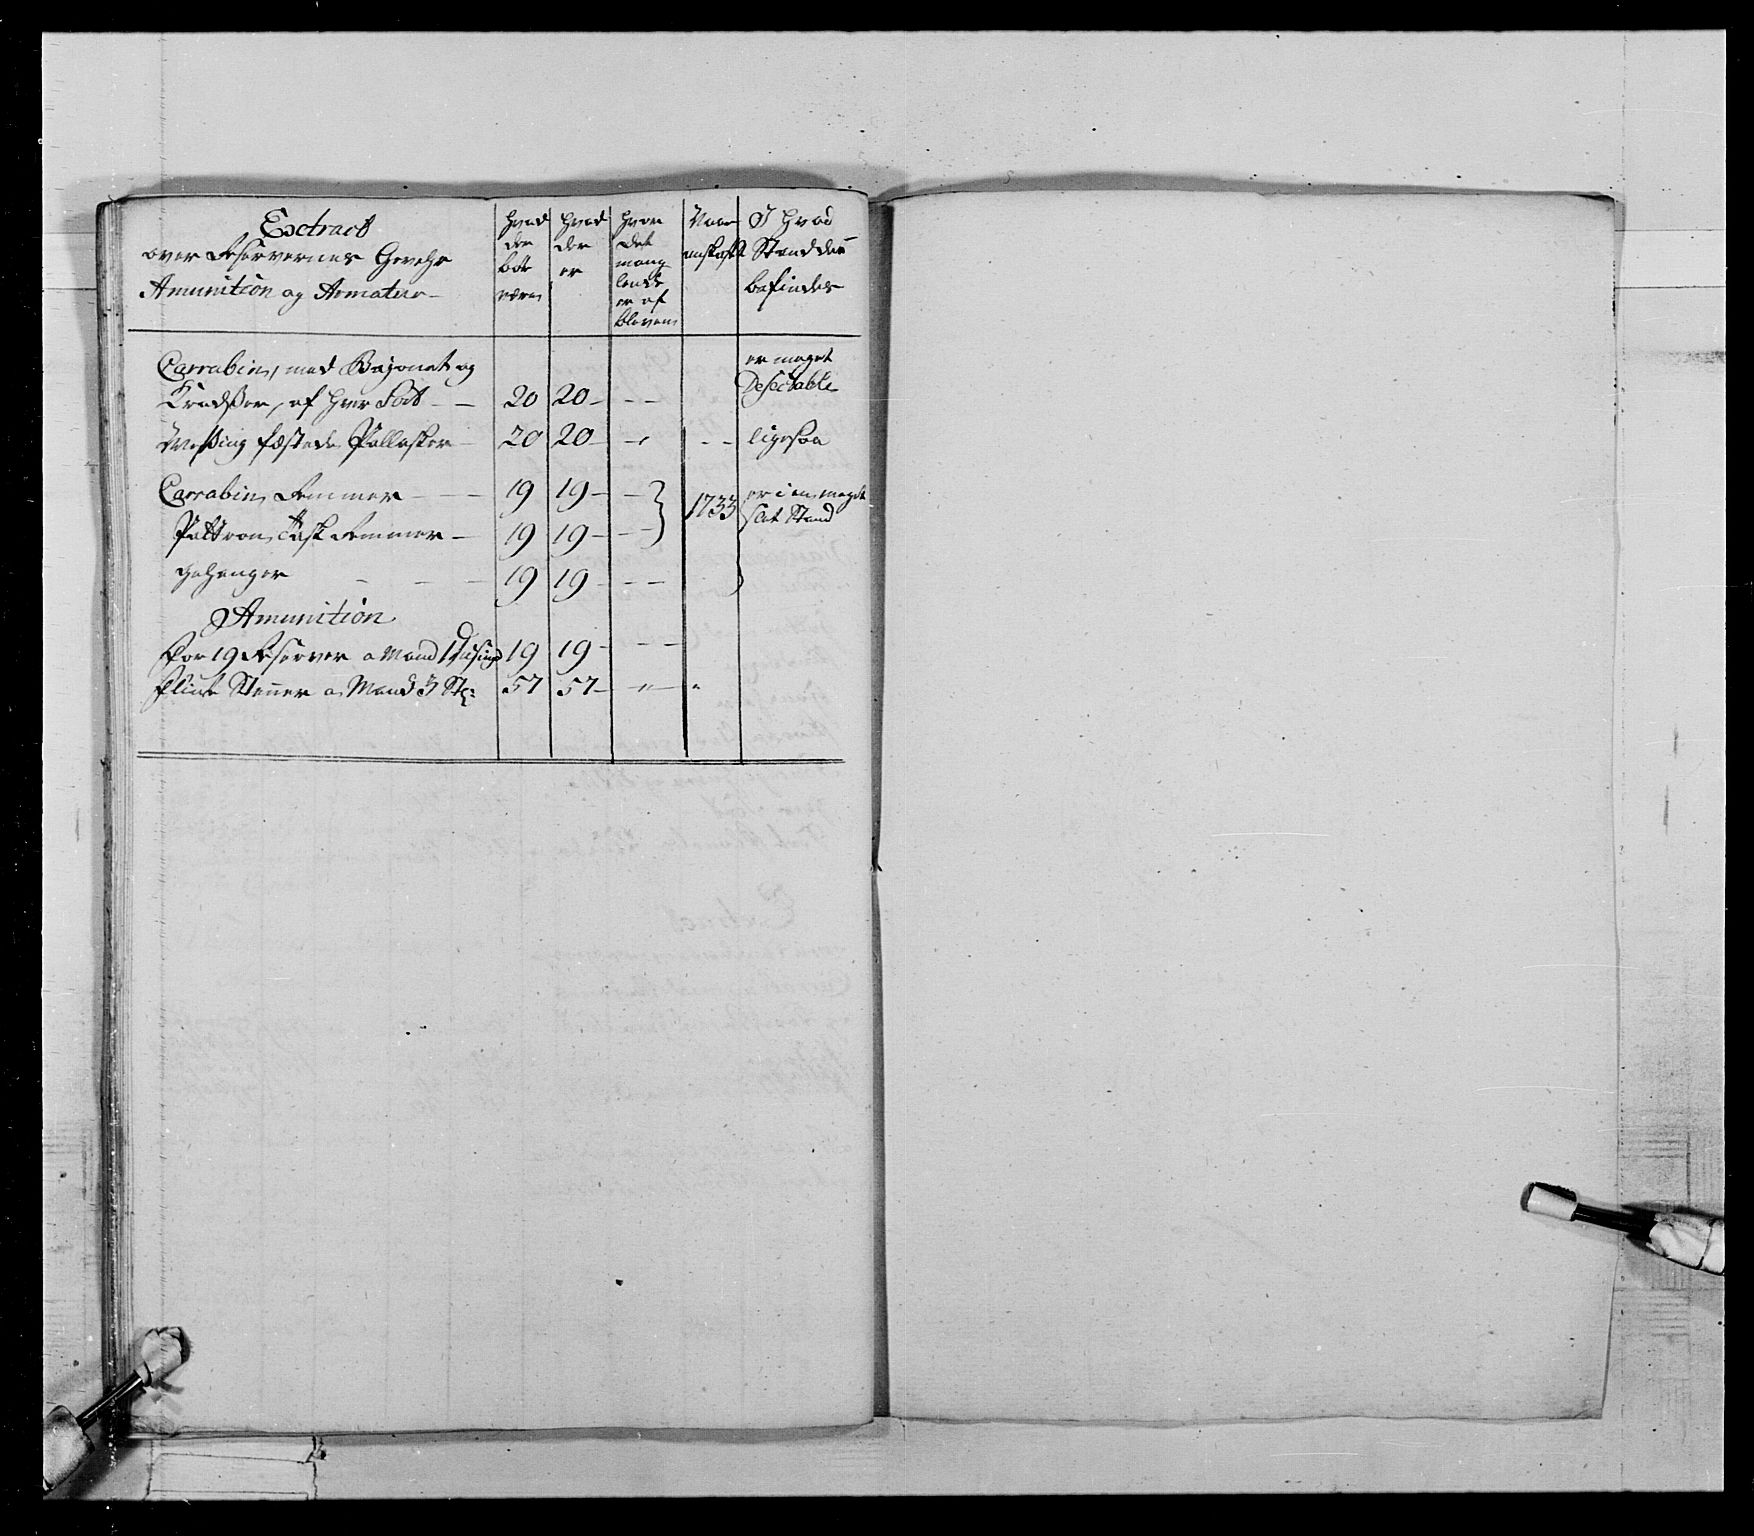 Extract
over Reservernes Gevehr
Amunition og Armatur
hvad der bör være
hvad der er
hvor det manglende er af bleven
Naar anskaft
I hvad Stand det befindes
Carrabin, med Bajonet og
Kradser, af hver Sort 20 20 er meget Defectable
Messing fæstede Pallasker 20 20 ligesaa
Carrabin Remmer 19 19 1733 er i en meget slet Stand
Pattron Task Remmer 19 19
gehenger 19 19
Amunition
For 19 Reserver a Mand 1 Dusin 19 19
Flint Stener a Mand 3 St: 57 57